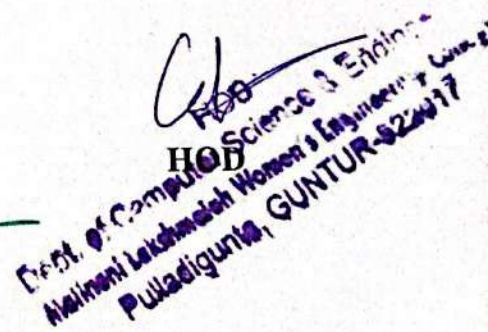 HOD
HOD
Dept. of Computer Science & Engine
Malineni Lakshmaiah Women's Engineering
Pulladigunta, GUNTUR-522017